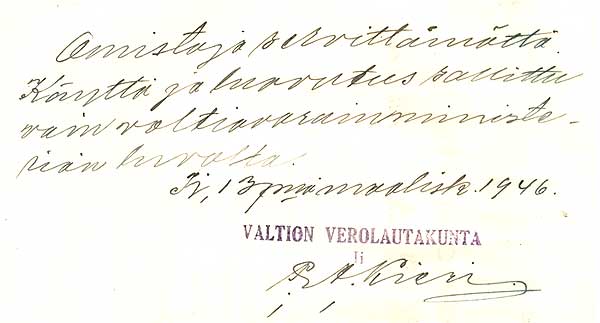 Omistaja selvittämättä.
Käyttö ja luovutus sallittu
vain valtiovarainministe-
riön luvalla.
Ii, 13 p:nä maalisk. 1946.
VALTION VEROLAUTAKUNTA
Ii